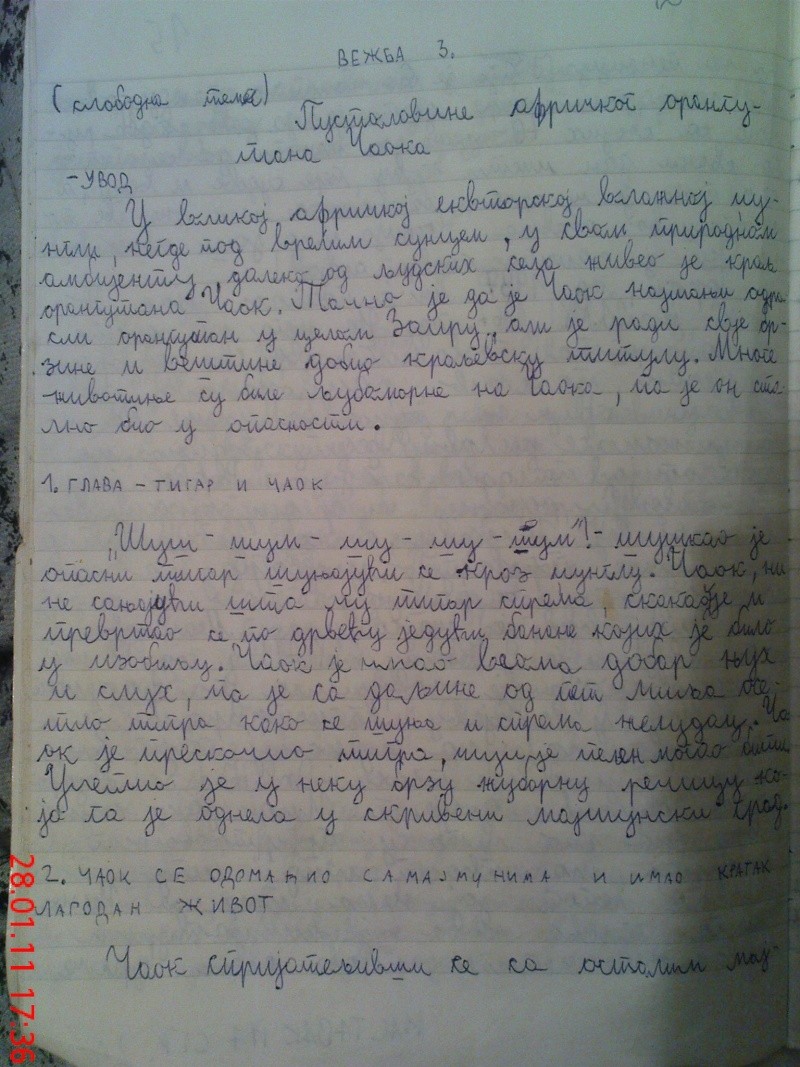 ВЕЖБА 3.
(слободна тема)
Пустоловине афричког орангу-
тана Чаока
-УВОД
У великој афричкој екваторској влажној џу-
нгли, негде под врелим сунцем, у свом природном
амбијенту, далеко од људских села живео је краљ
орангутана Чаок. Тачно је да је Чаок најмањи одра
сли орангутан у целом Заиру, али је ради своје бр-
зине и вештине добио краљевску титулу. Многе
животиње су биле љубоморне на Чаока, па је он ста
лно био у опасности.
1. ГЛАВА - ТИГАР И ЧАОК
„Шуш - шум - шу - шу - шум"! - шушкао је
опасни тигар шуњајући се кроз џунглу. Чаок, ни
не сањајући шта му тигар спрема, скакао је и
превртао се по дрвећу једући банане којих је било
у изобиљу. Чаок је имао веома добар њух
и слух, па је са даљине од пет миља осе-
тио тигра како се шуња и спрема желудац. Ча
ок је прескочио тигра, могао бити
Улетио је у неку брзу жуборну речицу ко-
ја га је однела у скривени мајмунски град.
2. ЧАОК СЕ ОДОМАЋИО СА МАЈМУНИМА И ИМАО КРАТАК
ЛАГОДАН ЖИВОТ
Чаок спријатељивши се са осталим мај
28.01.11 17:36